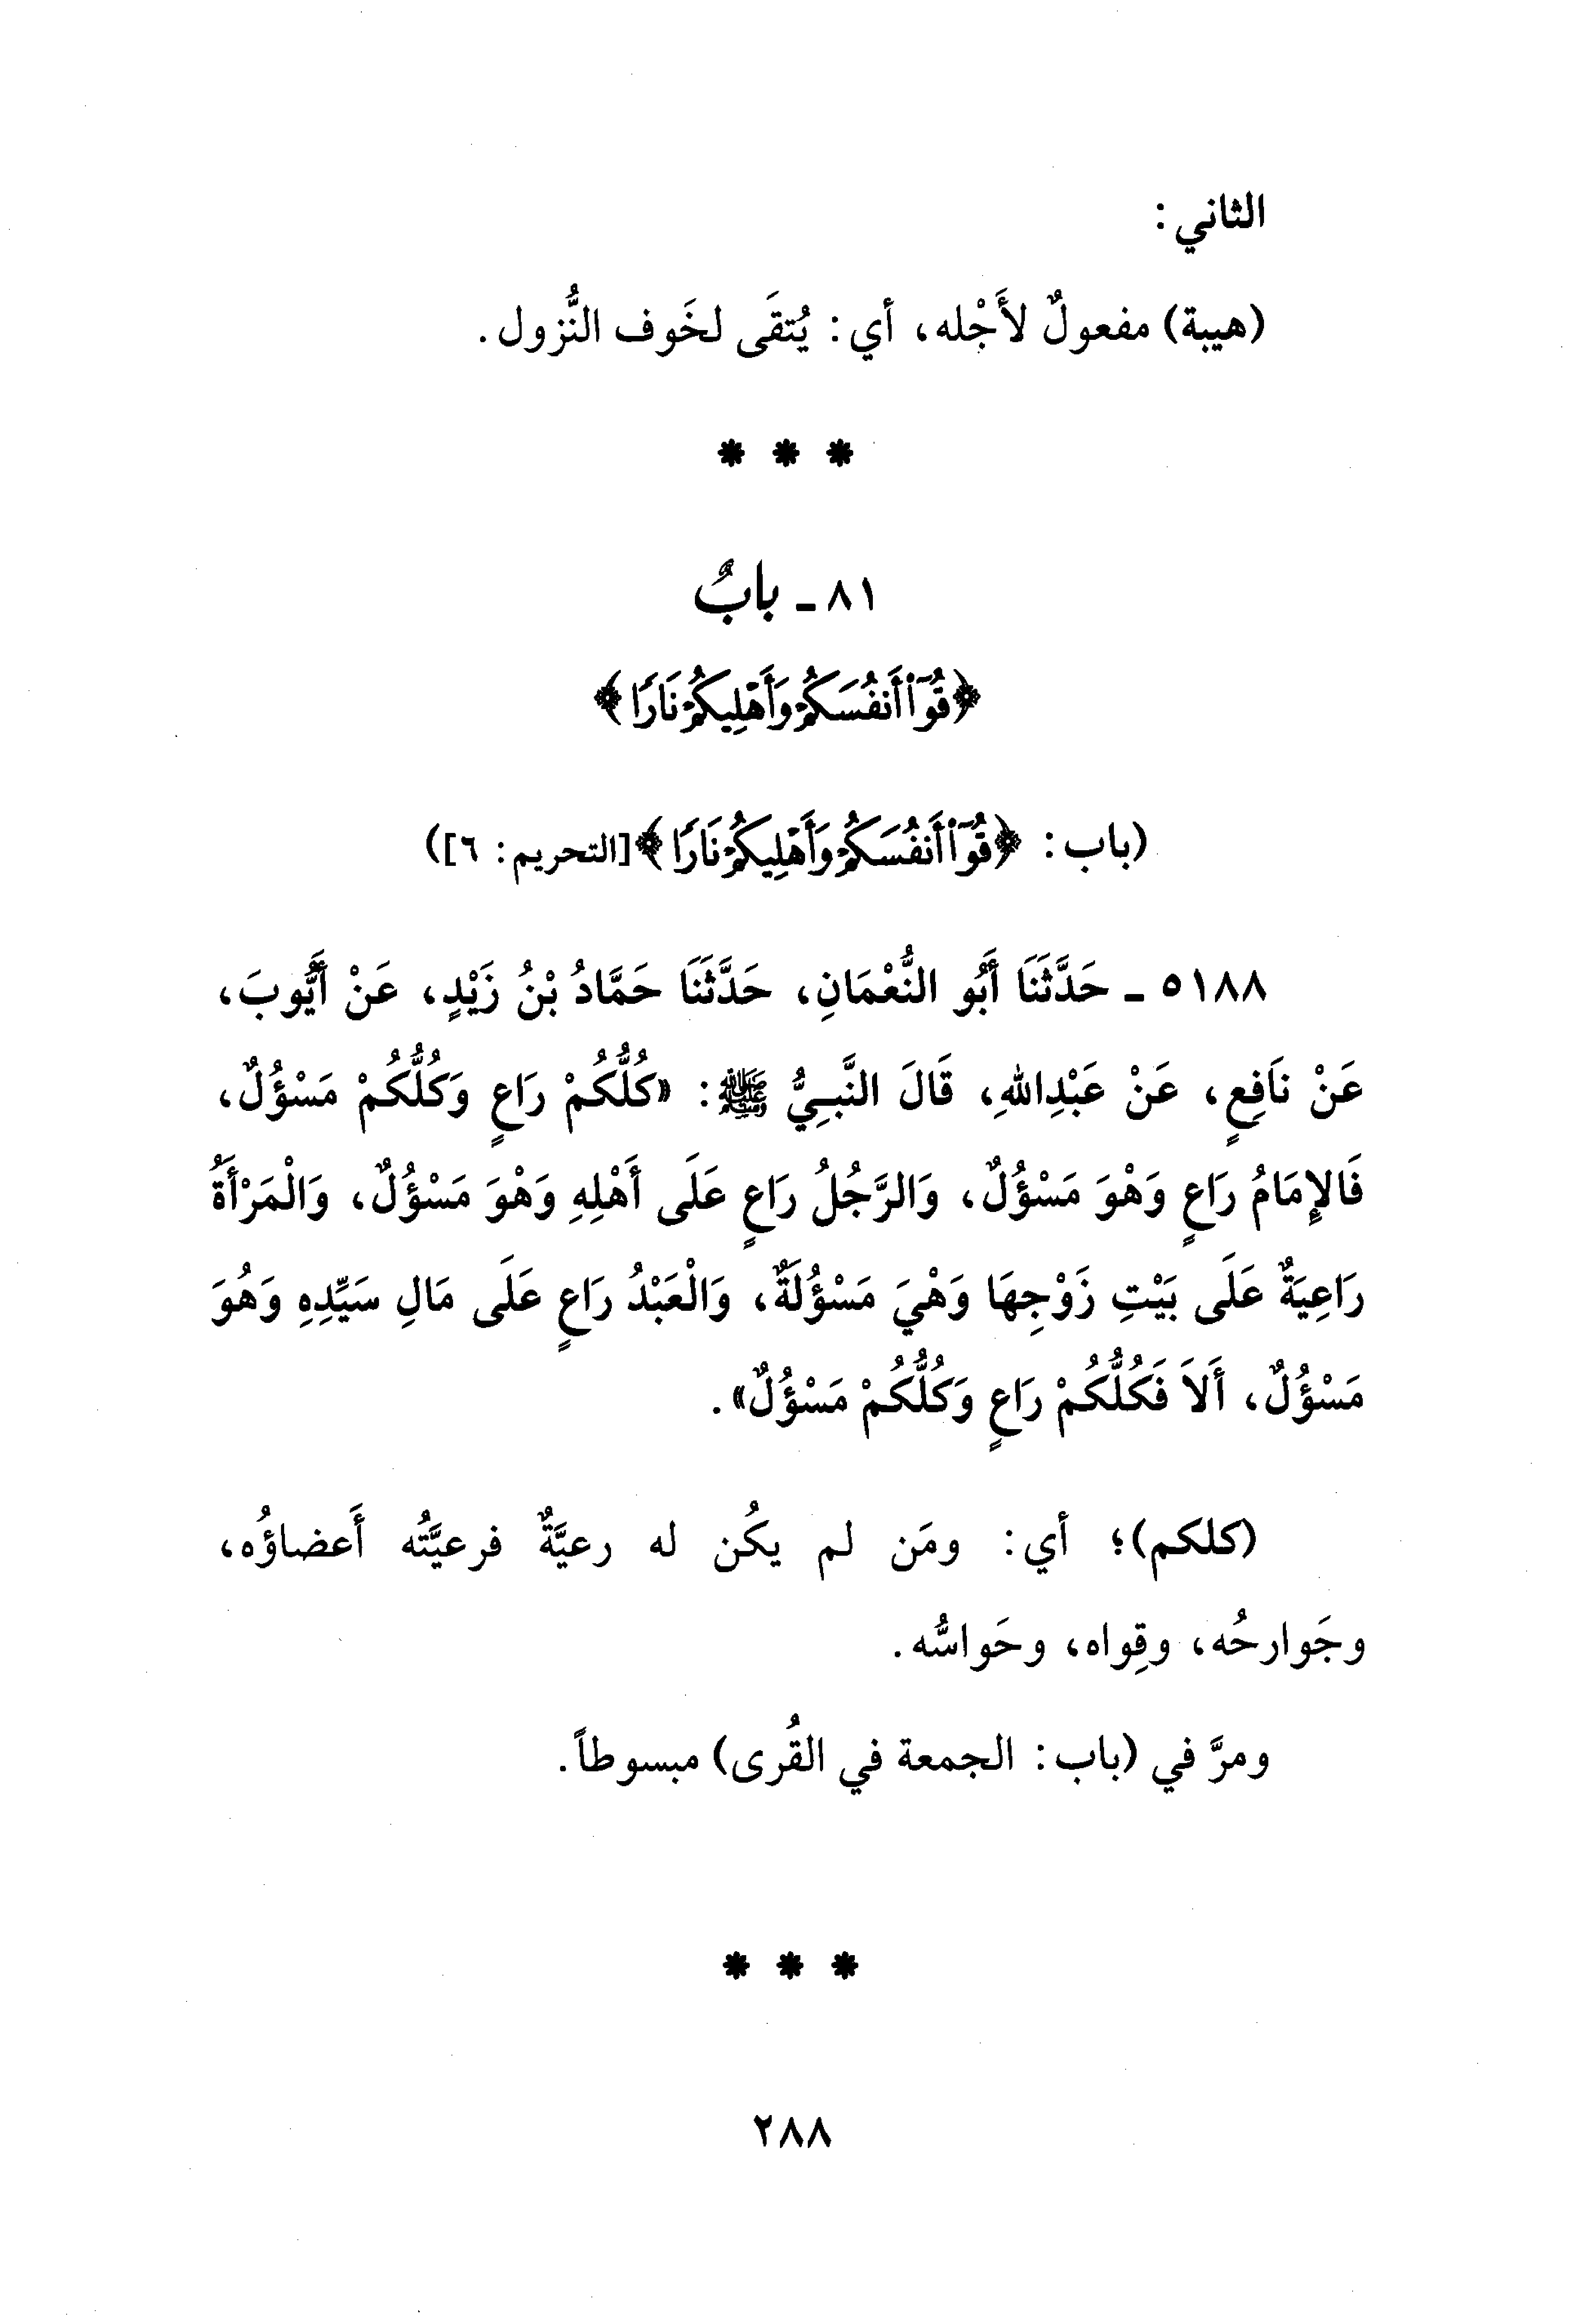 الثاني:
(هيبة) مفعولٌ لأَجْله، أي: يُتقَى لخَوف النُّزول.
* * *
٨١ ـ بابٌ
﴿قُوٓا۟ أَنفُسَكُمْ وَأَهْلِيكُمْ نَارًا﴾
(باب: ﴿قُوٓا۟ أَنفُسَكُمْ وَأَهْلِيكُمْ نَارًا﴾ [التحريم: ٦])
٥١٨٨ ـ حَدَّثَنَا أَبُو النُّعْمَانِ، حَدَّثَنَا حَمَّادُ بْنُ زَيْدٍ، عَنْ أَيُّوبَ،
عَنْ نَافِعٍ، عَنْ عَبْدِاللهِ، قَالَ النَّبِيُّ ﷺ: «كُلُّكُمْ رَاعٍ وَكُلُّكُمْ مَسْؤُلٌ،
فَالإِمَامُ رَاعٍ وَهْوَ مَسْؤُلٌ، وَالرَّجُلُ رَاعٍ عَلَى أَهْلِهِ وَهْوَ مَسْؤُلٌ، وَالْمَرْأَةُ
رَاعِيَةٌ عَلَى بَيْتِ زَوْجِهَا وَهْيَ مَسْؤُلَةٌ، وَالْعَبْدُ رَاعٍ عَلَى مَالِ سَيِّدِهِ وَهُوَ
مَسْؤُلٌ، أَلاَ فَكُلُّكُمْ رَاعٍ وَكُلُّكُمْ مَسْؤُلٌ».
(كلكم)؛ أي: ومَن لم يكُن له رعيَّةٌ فرعيَّتُه أَعضاؤُه،
وجَوارحُه، وقِواه، وحَواسُّه.
ومرَّ في (باب: الجمعة في القُرى) مبسوطاً.
* * *
٢٨٨